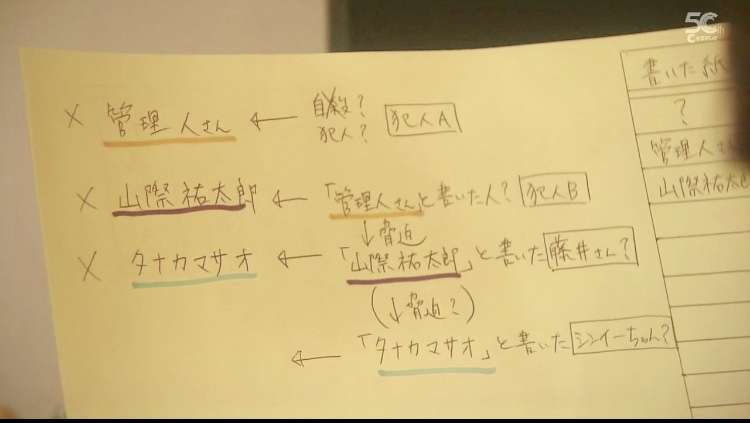 5C
× 管理人さん ← 自殺? 犯人? 犯人A
× 山際祐太郎 ← 「管理人さんと書いた人? 犯人B
↓脅迫
× タナカマサオ ← 「山際祐太郎」と書いた 藤井さん?
(↓脅迫?)
← 「タナカマサオ」と書いた シンイーちゃん?
書いた紙
?
管理人さん
山際祐太郎